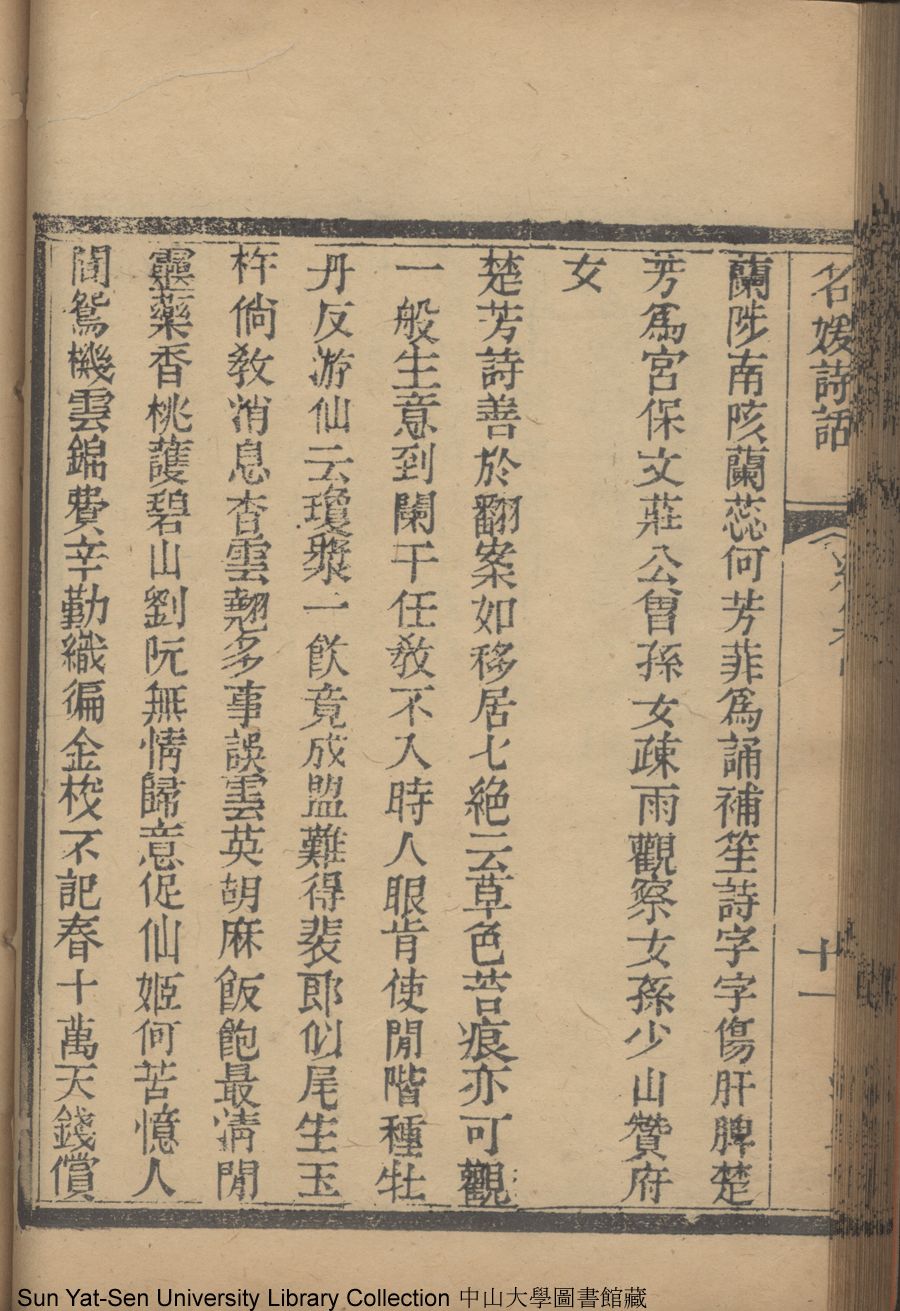 名媛詩話
十一
蘭陟南陔蘭蕊何芳菲爲誦補笙詩字字傷肝脾楚
芳爲宮保文莊公曾孫女疎雨觀察女孫少山贊府
女
楚芳詩善於翻案如移居七絕云草色苔痕亦可觀
一般生意到闌干任教不入時人眼肯使閒階種牡
丹反游仙云瓊漿一飲竟成盟難得裴郎似尾生玉
杵倘教消息杳雲翹多事誤雲英胡麻飯飽最淸閒
靈藥香桃護碧山劉阮無情歸意促仙姬何苦憶人
間鴛機雲錦費辛勤織徧金梭不記春十萬天錢償
Sun Yat-Sen University Library Collection 中山大學圖書館藏